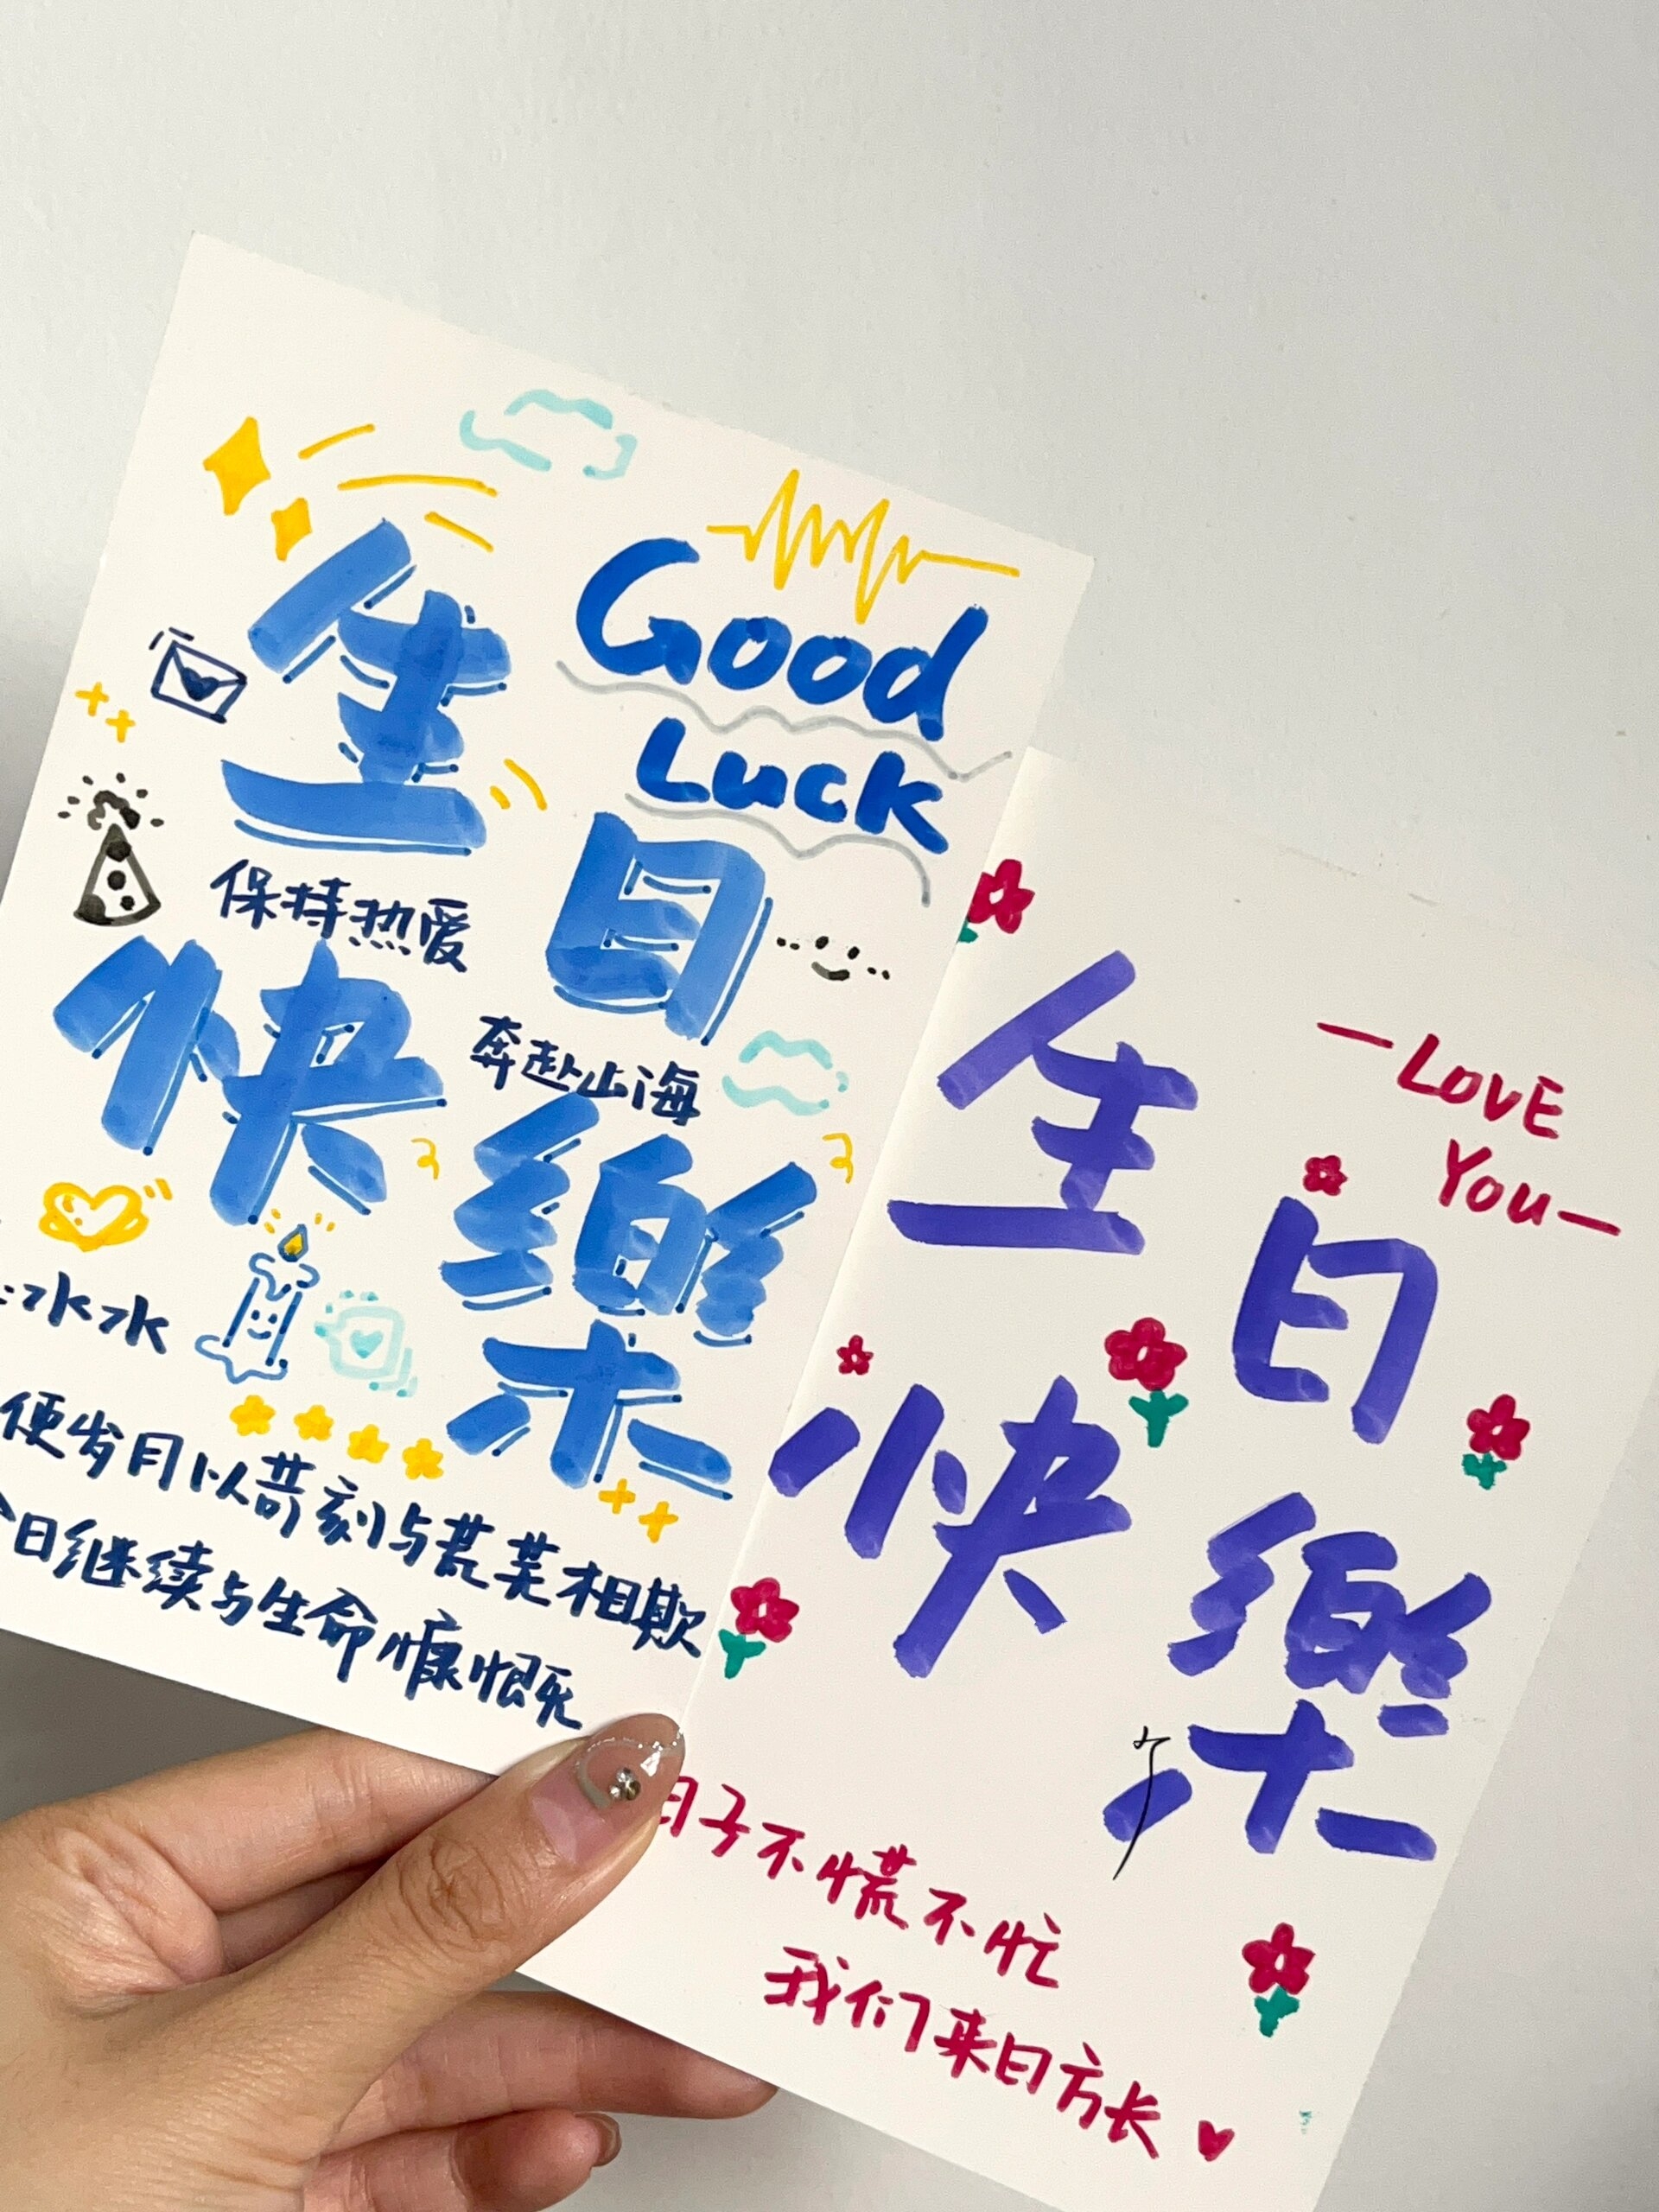 Good
Luck
生日
快樂
保持热爱
奔赴山海
水水
便岁月以苛刻与荒芜相欺
今日继续与生命慷慨
—LOVE
You—
生日
快樂
日子不慌不忙
我们来日方长